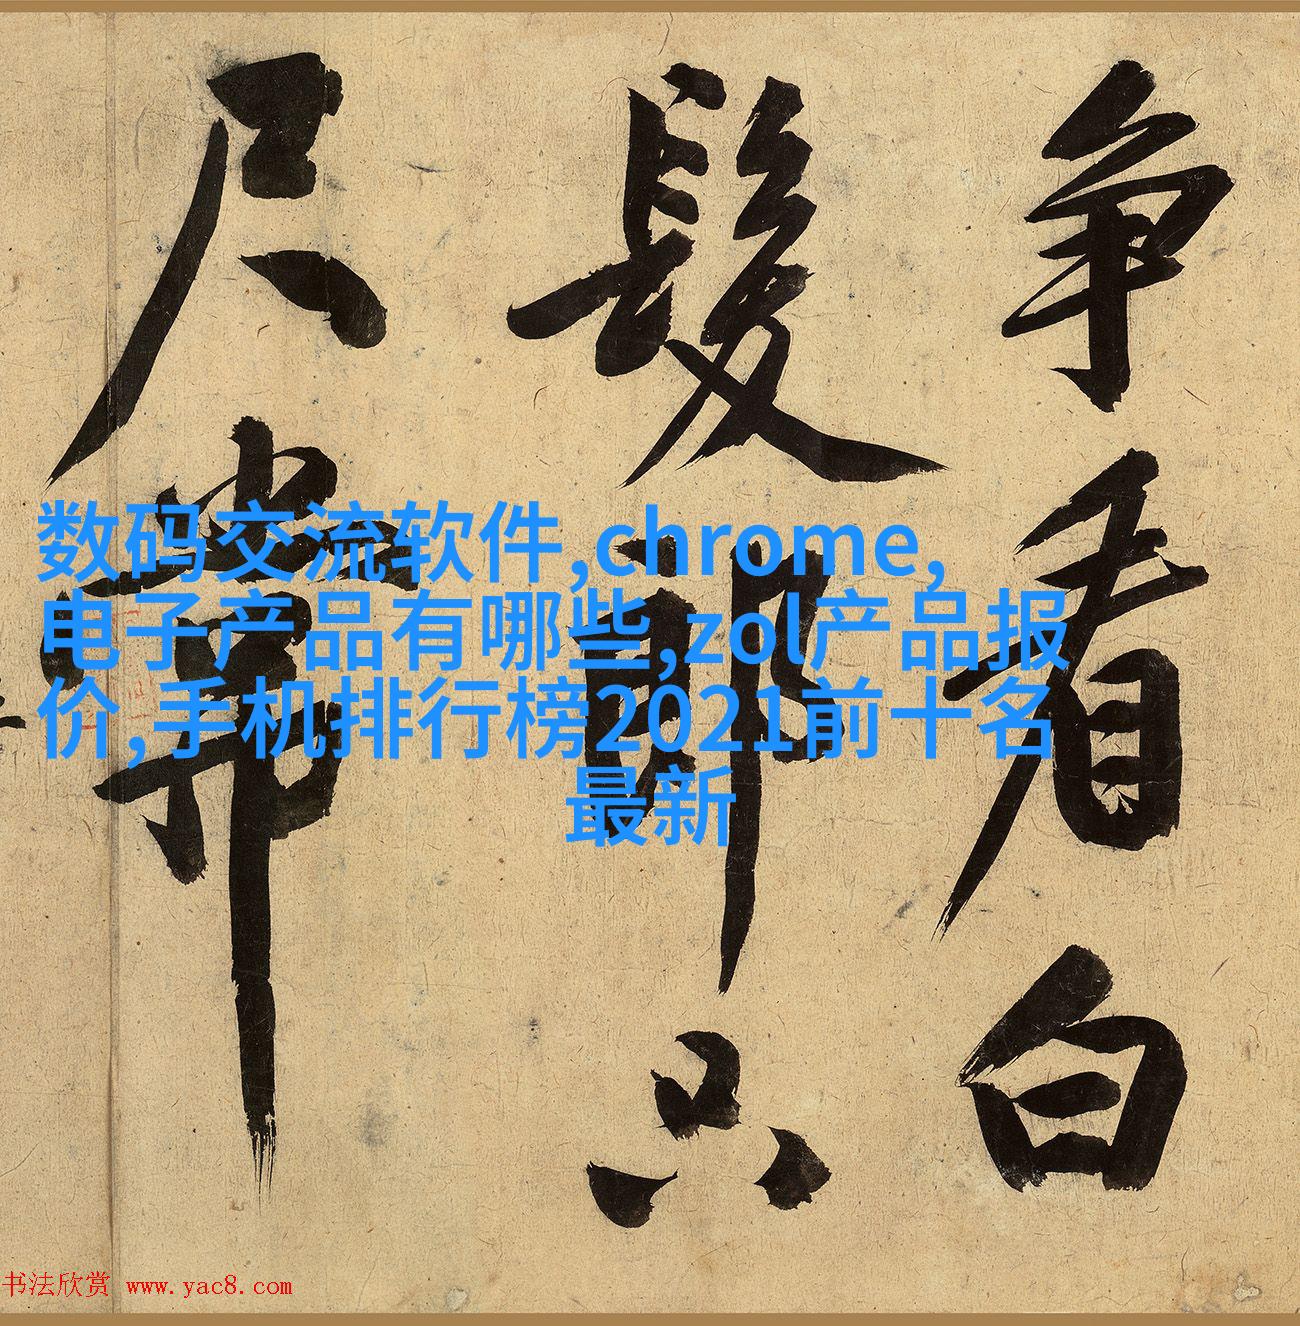 争看白
髮郎只
尺常
数码交流软件,chrome,
电子产品有哪些,zol产品报
价,手机排行榜2021前十名
最新
书法欣赏 www.yac8.com